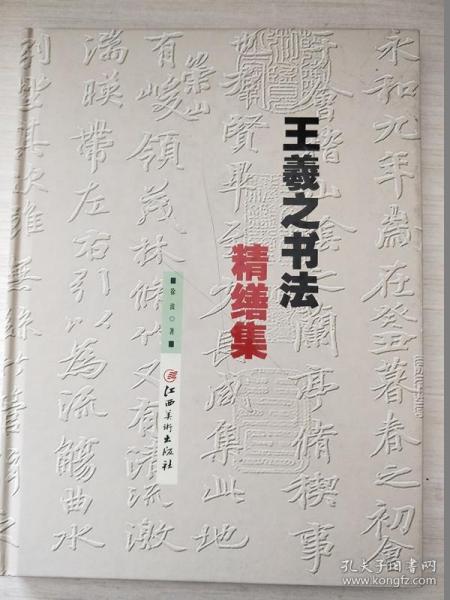 王羲之书法
精缮集
徐波◎著
江西美術出版社
永和九年歲在癸丑暮春之初會
于會稽山陰之蘭亭脩稧事
也群賢畢至少長咸集此地
有崇山峻領茂林脩竹又有清流激
湍暎帶左右引以為流觴曲水
列坐其次雖無絲竹管弦之
孔夫子旧书网
www.kongfz.com